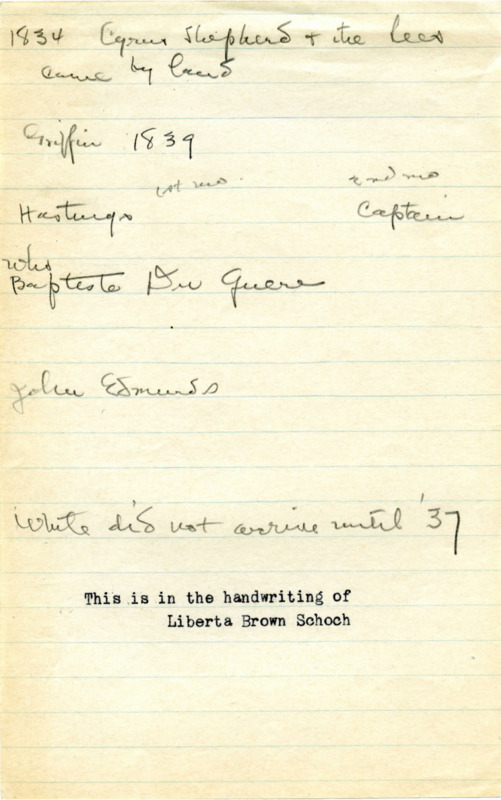 1834 Cyrus Shepherd + the Lees
came by land
Griffin 1839
1st mo. 2nd mo
Hastings Captain
who
Baptiste Du Guere
John Edmunds
White did not arrive until '37
This is in the handwriting of
Liberta Brown Schoch